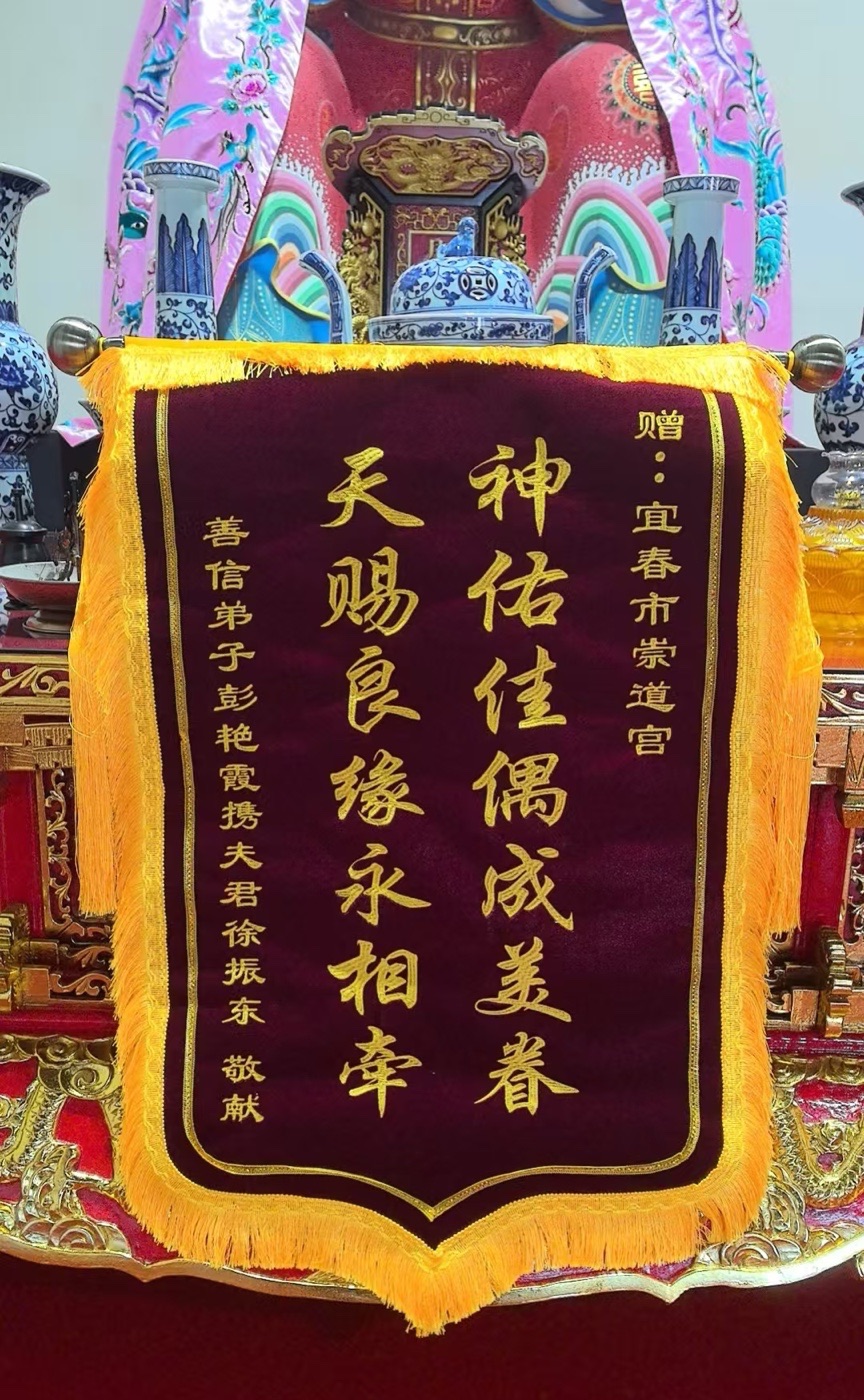 赠：宜春市崇道宫
神佑佳偶成美眷
天赐良缘永相牵
善信弟子彭艳霞携夫君徐振东 敬献